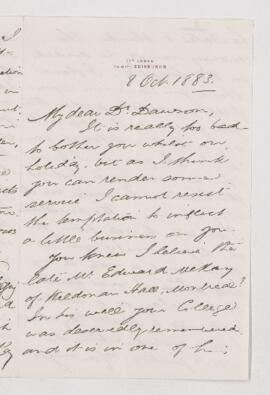 EDINBURGH
8 Oct. 1883.
My dear Dr. Dawson,
It is really too bad
to bother you whilst on
holiday, but as I think
you can render some
service I cannot resist
the temptation to inflict
a little business on you
You knew I believe the
late Mr. Edward McKay
of Kildonan Hall, Montreal?
In his will your College
was deservedly remembered
and it is in one of his